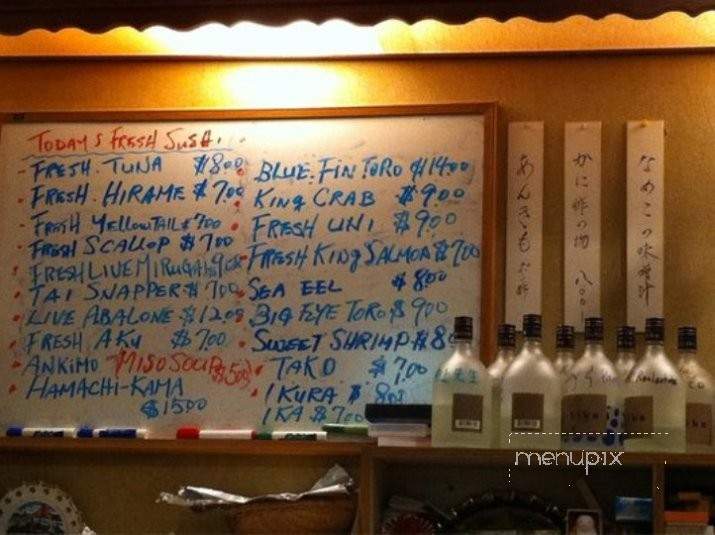 TODAY'S FRESH SUSHI.
FRESH. TUNA $800
FRESH. HIRAME $700
FRESH YELLOWTAIL $700
FRESH SCALLOP $700
FRESH LIVE MIRUGAI
TAI SNAPPER $700
LIVE ABALONE $1200
FRESH AKU $700
ANKIMO MISO SOUP $500
HAMACHI-KAMA
$1500
BLUE. FIN TORO $1400
KING CRAB $900
FRESH UNI $900
FRESH KING SALMON $700
SEA EEL $800
BIG EYE TORO $900
SWEET SHRIMP $8
TAKO $700
IKURA $800
IKA $700
あんきもポン酢
かに酢の物 八〇〇
なめこの味噌汁
menupix